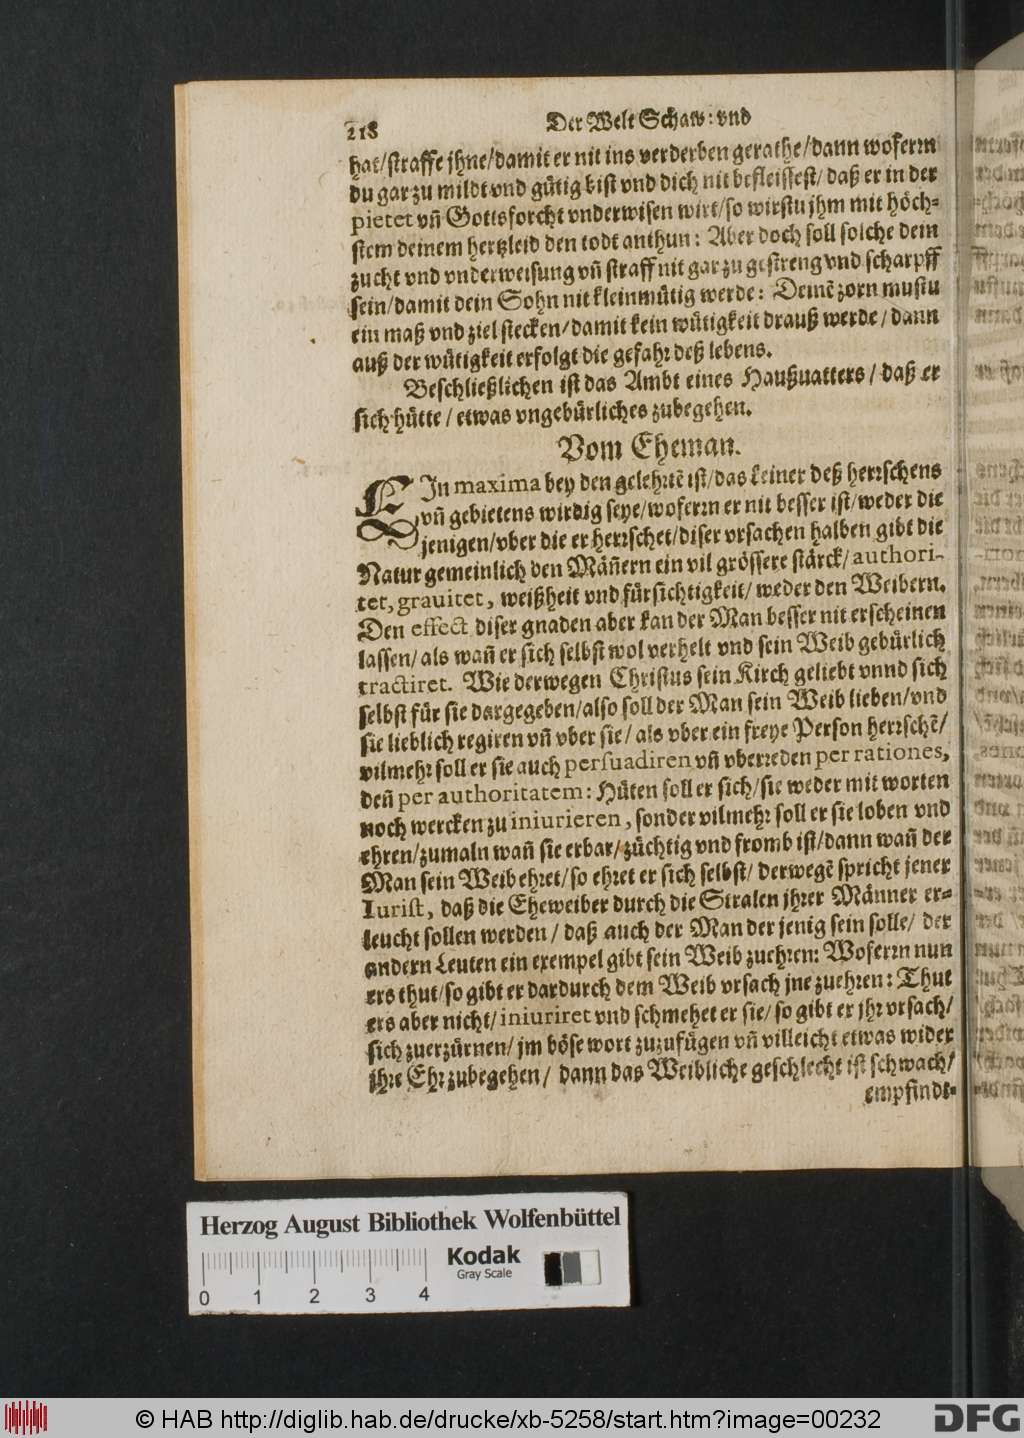 218 Der Welt Schaw: vnd
hat/straffe jhne/damit er nit ins verderben gerathe/dann woferrn
du gar zu mildt vnd gütig bist vnd dich nit befleissest/ daß er in der
pietet vñ Gottsforcht vnderwisen wirt/so wirstu jhm mit höch-
stem deinem hertzleid den todt anthun: Aber doch soll solche dein
zucht vnd vnderweisung vñ straff nit gar zu gestreng vnd scharpff
sein/damit dein Sohn nit kleinmütig werde: Deinē zorn mustu
ein maß vnd ziel stecken/damit kein wütigkeit drauß werde/ dann
auß der wütigkeit erfolgt die gefahr deß lebens.
Beschließlichen ist das Ambt eines Haußuatters/ daß er
sich hütte/ etwas vngebürliches zubegehen.
Vom Eheman.
EIn maxima bey den gelehrtē ist/das keiner deß herrschens
vñ gebietens wirdig seye/woferrn er nit besser ist/weder die
jenigen/vber die er herrschet/diser vrsachen halben gibt die
Natur gemeinlich den Mäñern ein vil grössere stärck/ authori-
tet, grauitet, weißheit vnd fürsichtigkeit/ weder den Weibern.
Den effect diser gnaden aber kan der Man besser nit erscheinen
lassen/ als wañ er sich selbst wol verhelt vnd sein Weib gebürlich
tractiret. Wie derwegen Christus sein Kirch geliebt vnnd sich
selbst für sie dargegeben/also soll der Man sein Weib lieben/vnd
sie lieblich regiren vñ vber sie/ als vber ein freye Person herrschē/
vilmehr soll er sie auch persuadiren vñ vberreden per rationes,
deñ per authoritatem: Hüten soll er sich/sie weder mit worten
noch wercken zu iniurieren, sonder vilmehr soll er sie loben vnd
ehren/zumaln wañ sie erbar/züchtig vnd fromb ist/dann wañ der
Man sein Weib ehret/so ehret er sich selbst/ derwegē spricht jener
Iurist, daß die Eheweiber durch die Stralen jhrer Männer er-
leucht sollen werden/ daß auch der Man der jenig sein solle/ der
andern Leuten ein exempel gibt sein Weib zuehren: Woferrn nun
ers thut/so gibt er dardurch dem Weib vrsach jne zuehren: Thut
ers aber nicht/iniuriret vnd schmehet er sie/so gibt er jhr vrsach/
sich zuerzürnen/ jm böse wort zuzufügen vñ villeicht etwas wider
jhre Ehr zubegehen/ dann das Weibliche geschlecht ist schwach/
empfindt-
Herzog August Bibliothek Wolfenbüttel
Kodak
Gray Scale
0 1 2 3 4
© HAB http://diglib.hab.de/drucke/xb-5258/start.htm?image=00232
DFG